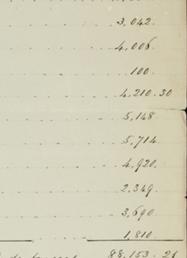 3,042.
4,006.
100.
4,210.30
5,148
5,714.
4,920.
2,349.
3,690
1,810.
88,153.21